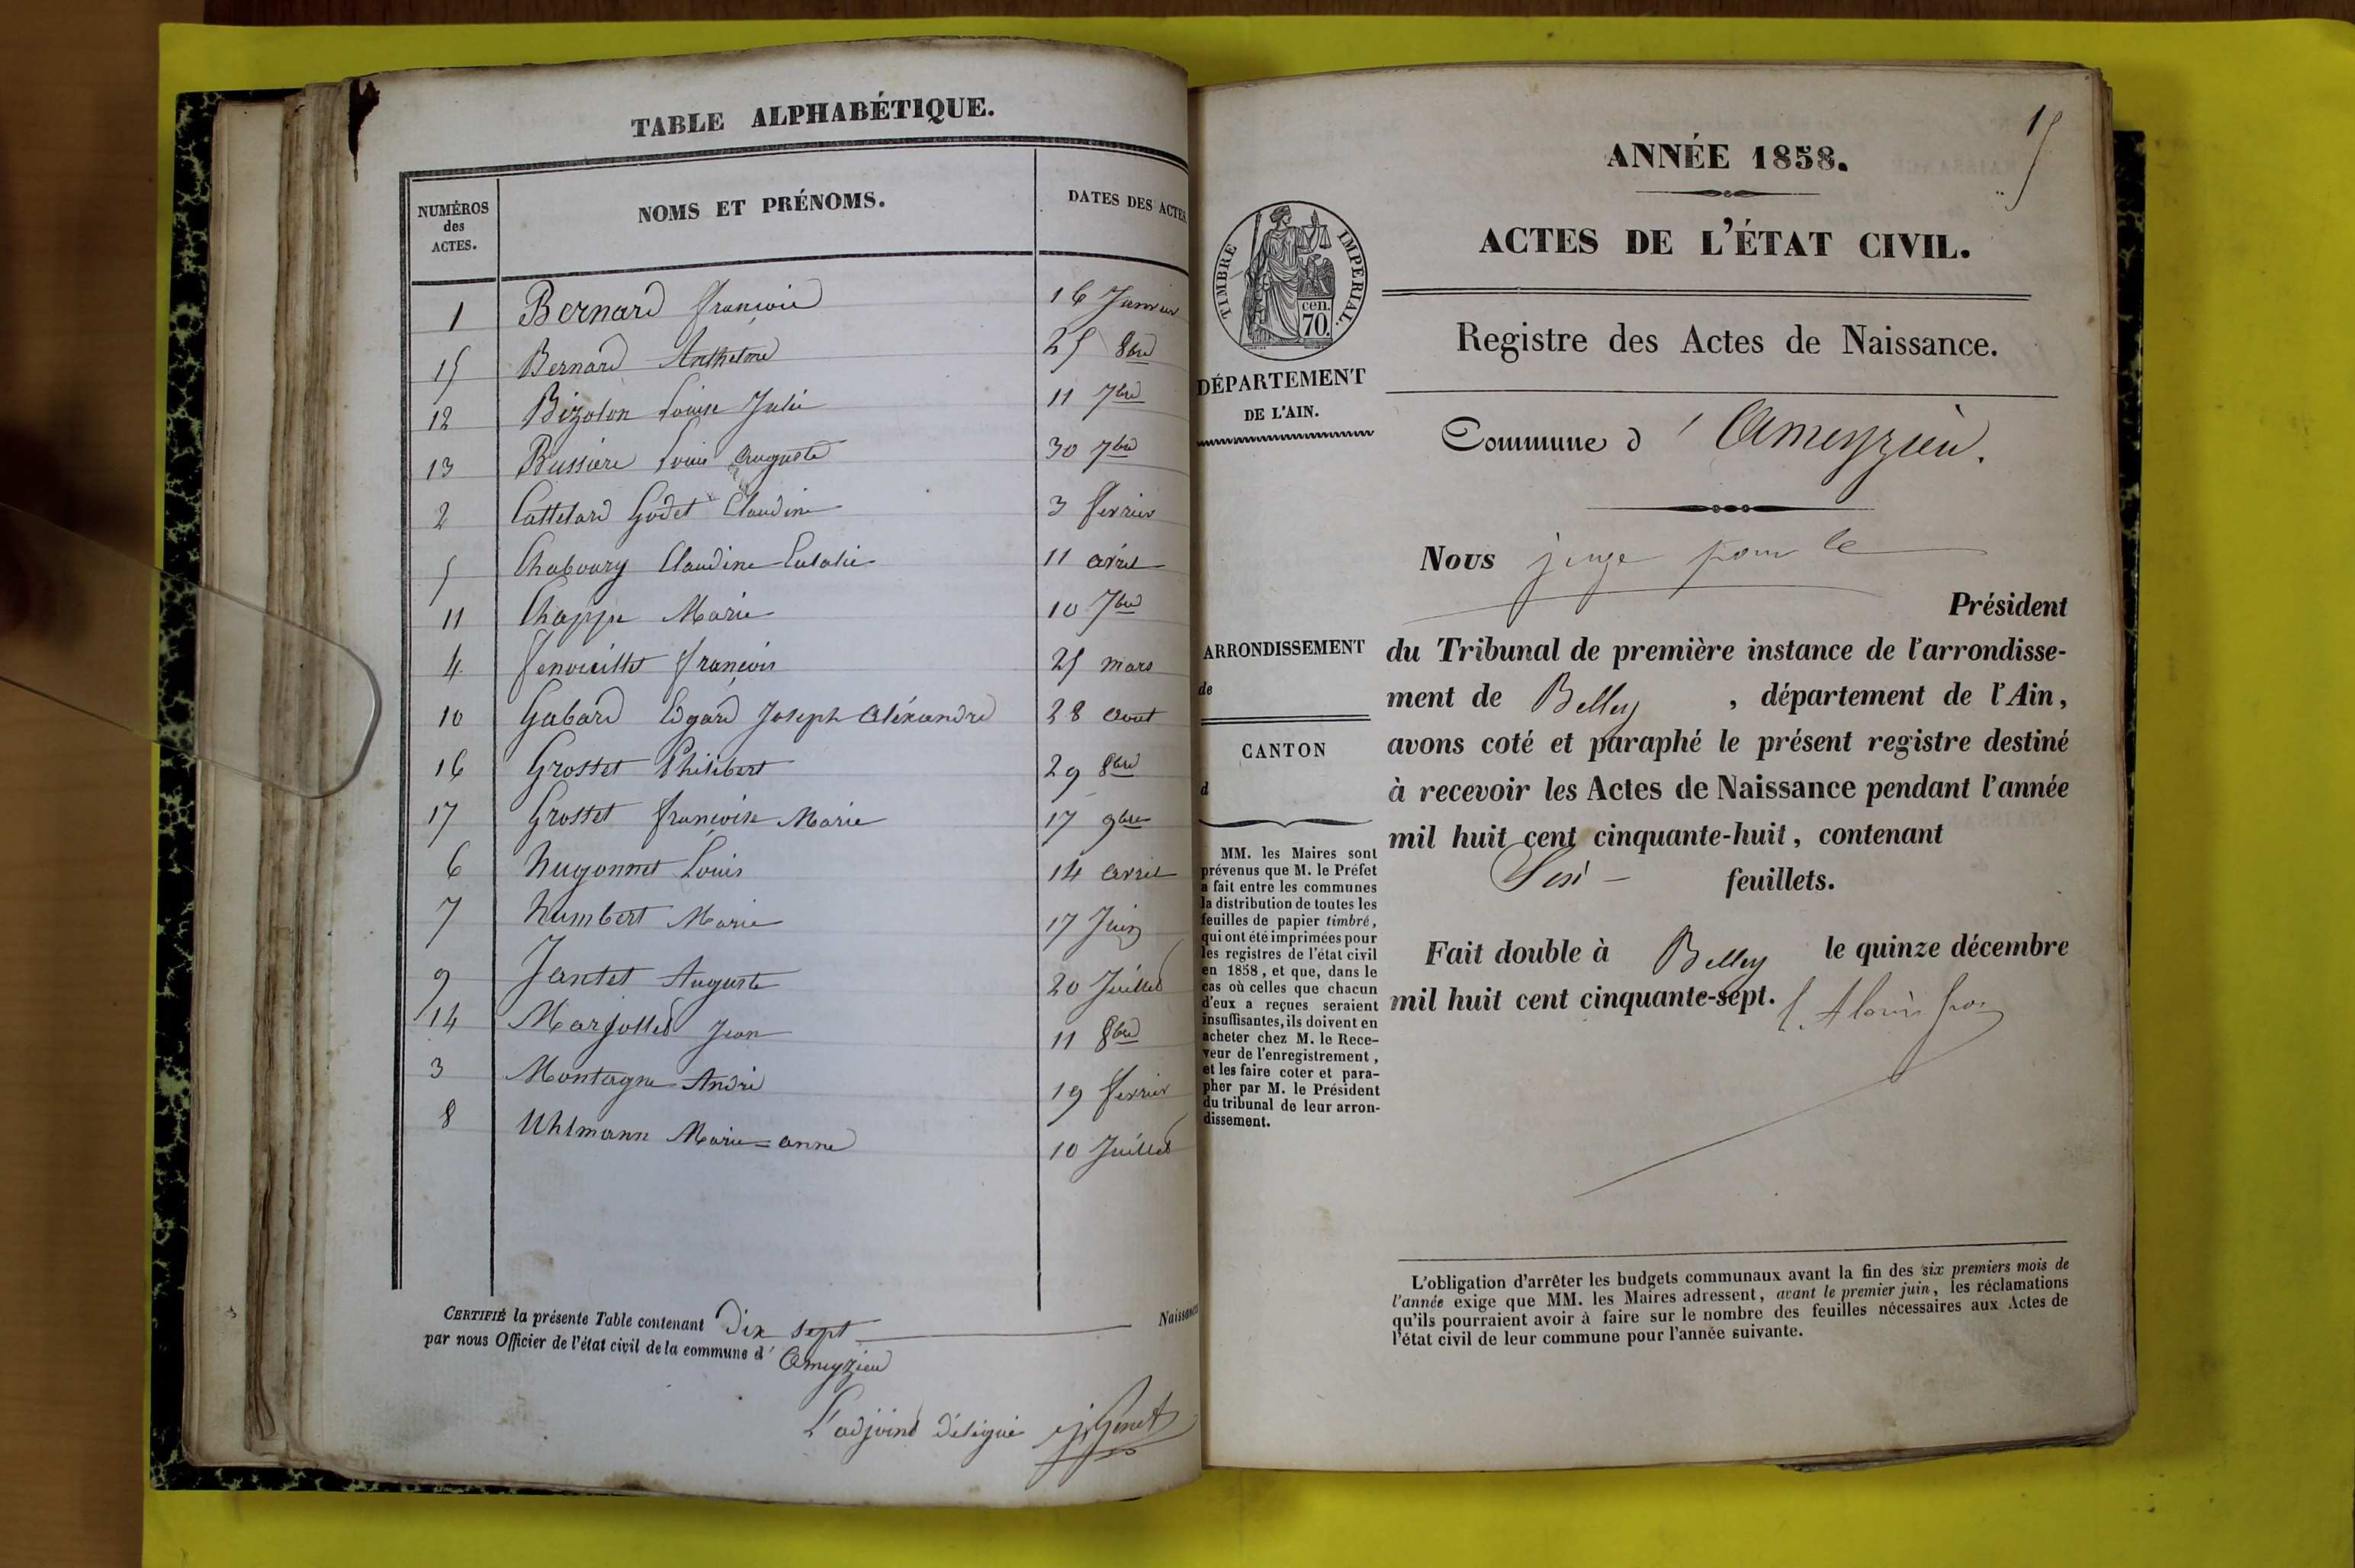 TABLE ALPHABÉTIQUE.
NUMÉROS des ACTES. NOMS ET PRÉNOMS. DATES DES ACTES
1 Bernard François 16 Janvier
15 Bernard Anthelme 25 8bre
12 Bizolon Louise Julie 11 7bre
13 Bussiere Louis Auguste 30 7bre
2 Cattelard Godet Claudine 3 fevrier
5 Chaboury Claudine Eulalie 11 avril
11 Chappe Marie 10 7bre
4 Fenouillet François 25 mars
10 Gabard Edgard Joseph Aléxandre 28 Aout
16 Grosset Philibert 29 8bre
17 Grosset françoise Marie 17 9bre
6 hugonnet Louis 14 avril
7 humbert Marie 17 Juin
9 Jantet Auguste 20 Juillet
14 Marjollet Jean 11 8bre
3 Montagne André 19 fevrier
8 Uhlmann Marie=anne 10 Juillet
CERTIFIÉ la présente Table contenant Dix sept Naissances
par nous Officier de l'état civil de la commune d' Ameyzieu
L'adjoint délégué
15
ANNÉE 1858.
ACTES DE L'ÉTAT CIVIL.
TIMBRE IMPERIAL.
cen.
70.
Registre des Actes de Naissance.
DÉPARTEMENT
DE L'AIN.
Commune d' Ameyzieu.
Nous juge pour le
Président
ARRONDISSEMENT
de
du Tribunal de première instance de l'arrondisse-
ment de Belley , département de l'Ain,
CANTON
d
avons coté et paraphé le présent registre destiné
à recevoir les Actes de Naissance pendant l'année
mil huit cent cinquante-huit, contenant
Six feuillets.
Fait double à Belley le quinze décembre
mil huit cent cinquante-sept.
MM. les Maires sont
prévenus que M. le Préfet
a fait entre les communes
la distribution de toutes les
feuilles de papier timbré,
qui ont été imprimées pour
les registres de l'état civil
en 1858, et que, dans le
cas où celles que chacun
d'eux a reçues seraient
insuffisantes, ils doivent en
acheter chez M. le Rece-
veur de l'enregistrement,
et les faire coter et para-
pher par M. le Président
du tribunal de leur arron-
dissement.
L'obligation d'arrêter les budgets communaux avant la fin des six premiers mois de
l'année exige que MM. les Maires adressent, avant le premier juin, les réclamations
qu'ils pourraient avoir à faire sur le nombre des feuilles nécessaires aux Actes de
l'état civil de leur commune pour l'année suivante.